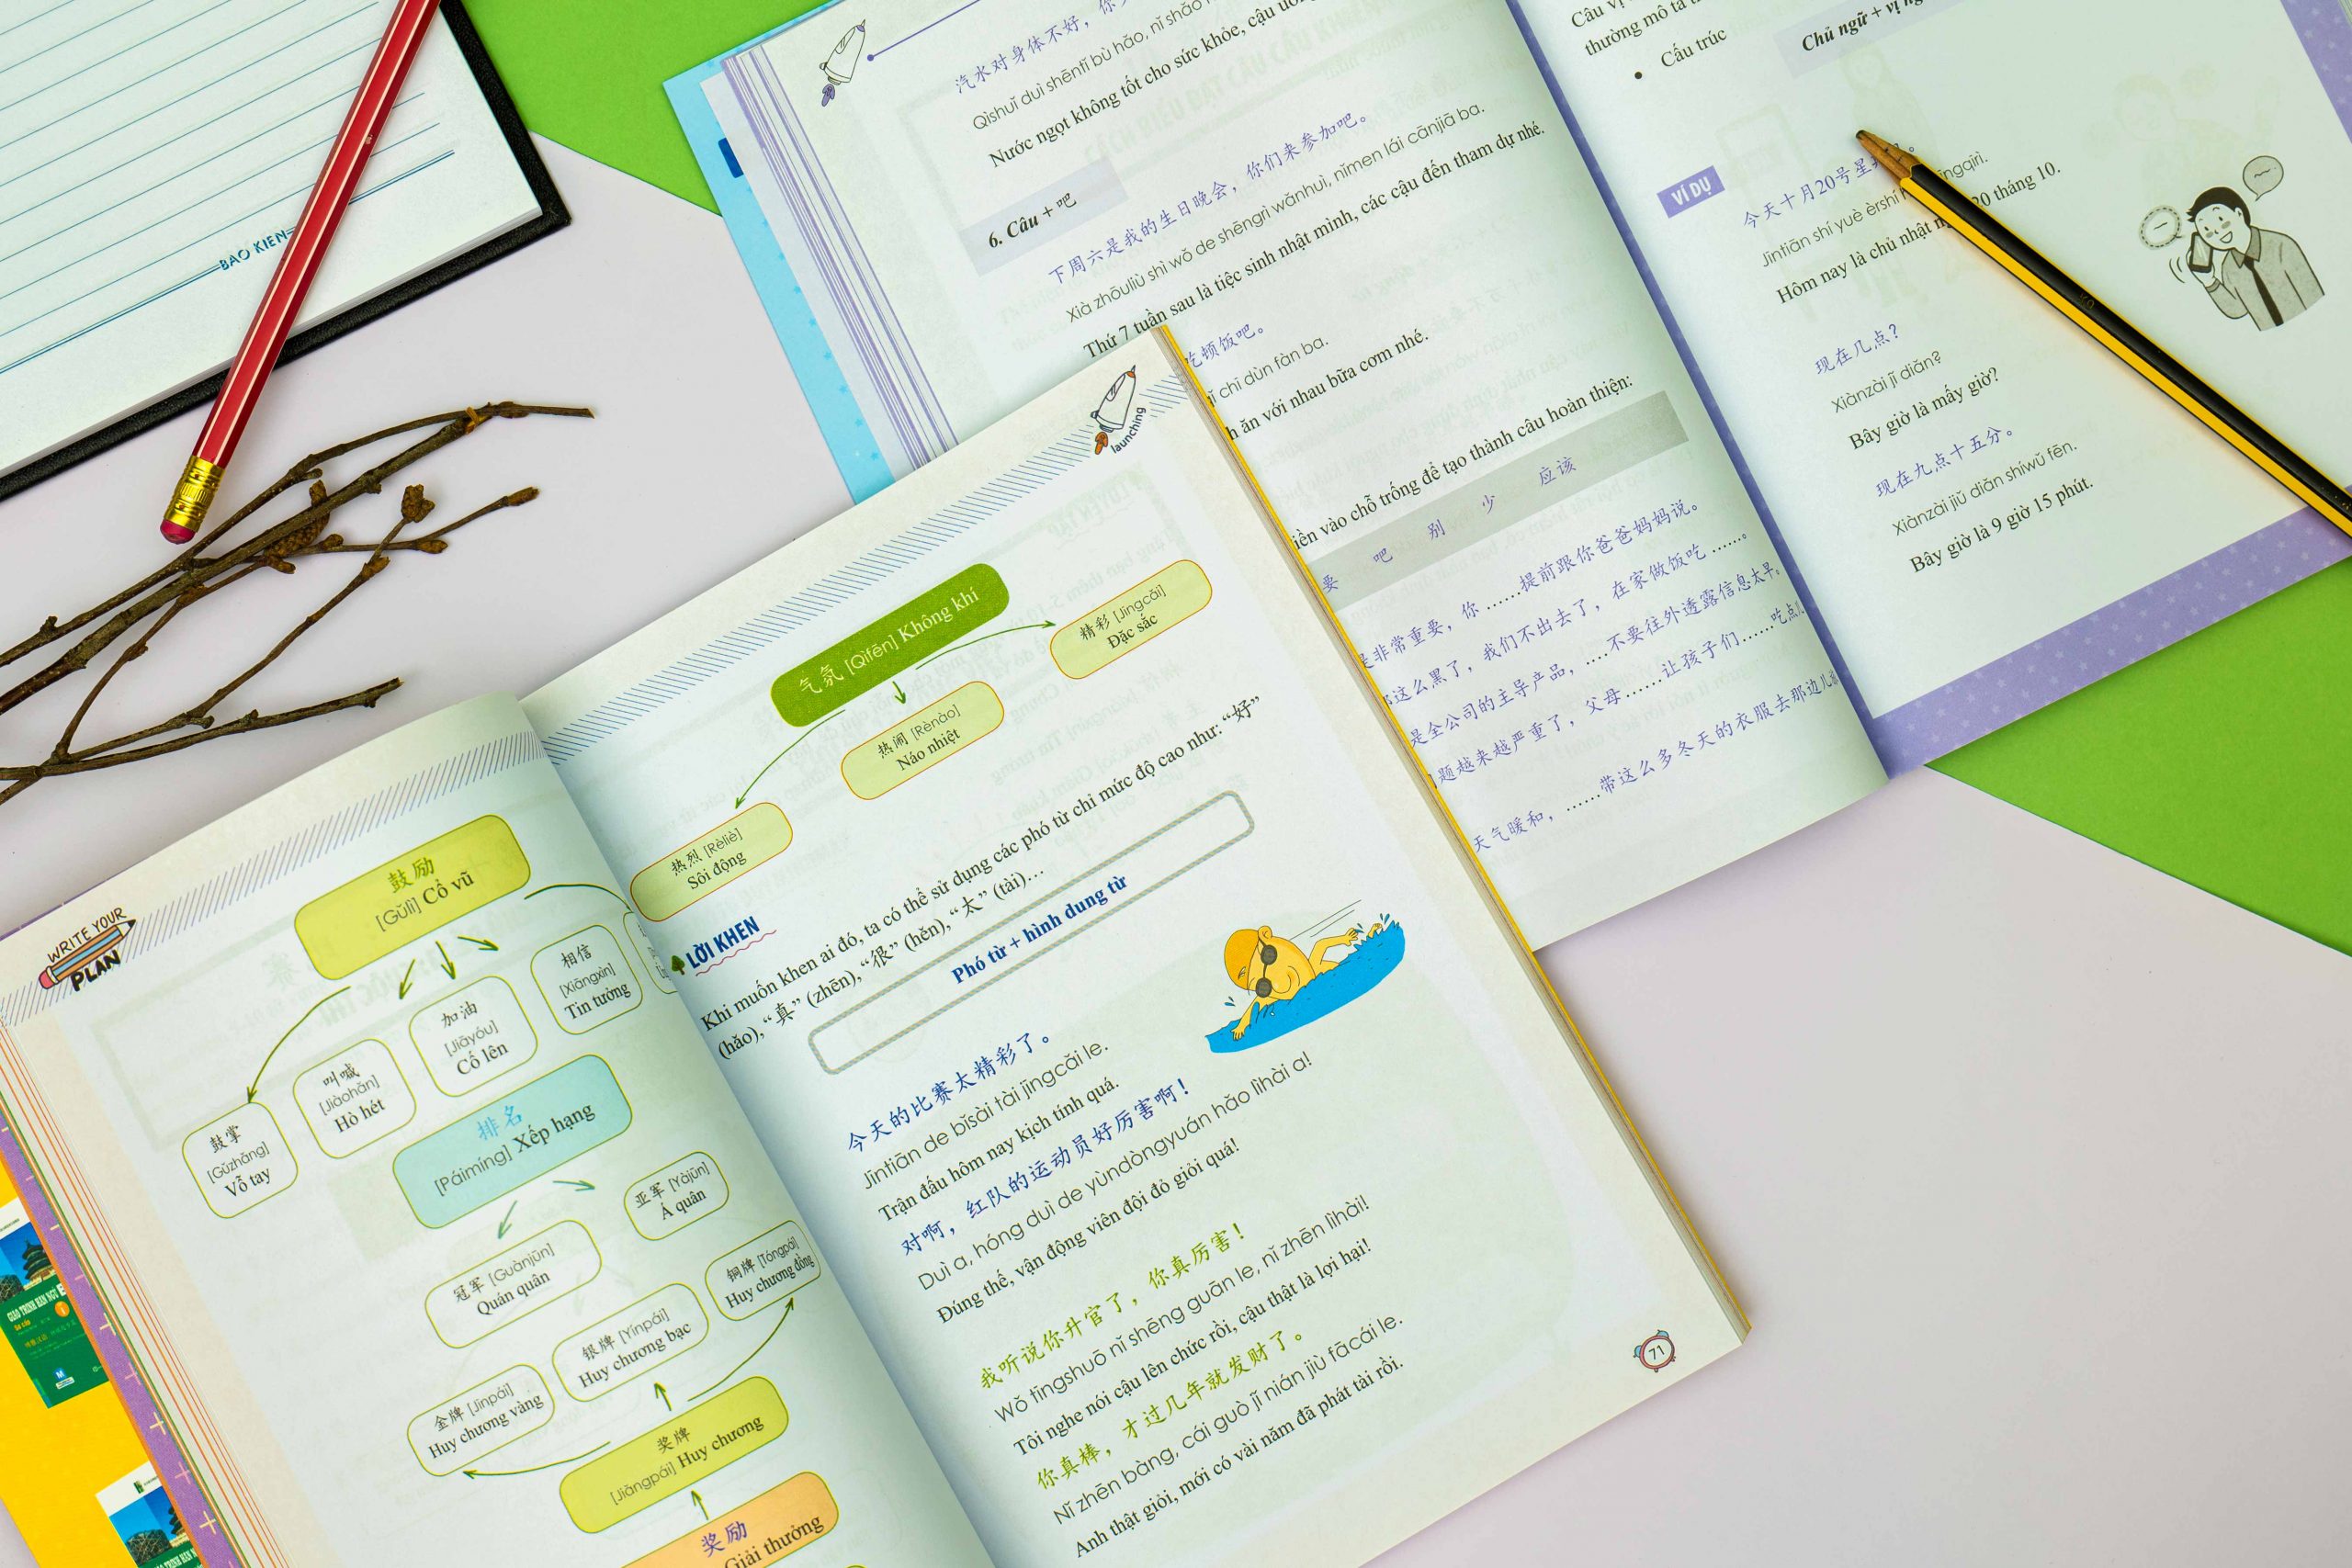 BAO KIEN
汽水对身体不好，你
Qìshuǐ duì shēntǐ bù hǎo, nǐ shǎo
Nước ngọt không tốt cho sức khỏe, cậu uống
6. Câu + 吧
下周六是我的生日晚会，你们来参加吧。
Xià zhōuliù shì wǒ de shēngrì wǎnhuì, nǐmen lái cānjiā ba.
Thứ 7 tuần sau là tiệc sinh nhật mình, các cậu đến tham dự nhé.
吃顿饭吧。
chī dùn fàn ba.
ăn với nhau bữa cơm nhé.
vào chỗ trống để tạo thành câu hoàn thiện:
要 吧 别 少 应该
非常重要，你 ......提前跟你爸爸妈妈说。
这么黑了，我们不出去了，在家做饭吃 ......。
是全公司的主导产品，....不要往外透露信息太早。
题越来越严重了，父母......让孩子们......吃点儿
天气暖和，......带这么多冬天的衣服去那边儿
Câu vị
thường mô tả
• Cấu trúc
Chủ ngữ + vị
VÍ DỤ
今天十月20号星
Jīntiān shí yuè èrshí
Hôm nay là chủ nhật 20 tháng 10.
现在几点？
Xiànzài jǐ diǎn?
Bây giờ là mấy giờ?
现在九点十五分。
Xiànzài jiǔ diǎn shíwǔ fēn.
Bây giờ là 9 giờ 15 phút.
WRITE YOUR
PLAN
鼓励
[Gǔlì] Cổ vũ
鼓掌
[Gǔzhǎng]
Vỗ tay
叫喊
[Jiàohǎn]
Hò hét
加油
[Jiāyóu]
Cố lên
相信
[Xiāngxìn]
Tin tưởng
排名
[Páimíng] Xếp hạng
冠军 [Guànjūn]
Quán quân
亚军 [Yàjūn]
Á quân
金牌 [Jīnpái]
Huy chương vàng
银牌 [Yínpái]
Huy chương bạc
铜牌 [Tóngpái]
Huy chương đồng
奖牌
[Jiǎngpái] Huy chương
奖励
Giải thưởng
launching
气氛 [Qìfēn] Không khí
热烈 [Rèliè]
Sôi động
热闹 [Rènào]
Náo nhiệt
精彩 [Jīngcǎi]
Đặc sắc
LỜI KHEN
Khi muốn khen ai đó, ta có thể sử dụng các phó từ chỉ mức độ cao như: “好”
(hǎo), “真” (zhēn), “很” (hěn), “太” (tài)...
Phó từ + hình dung từ
今天的比赛太精彩了。
Jīntiān de bǐsài tài jīngcǎi le.
Trận đấu hôm nay kịch tính quá.
对啊，红队的运动员好厉害啊！
Duì a, hóng duì de yùndòngyuán hǎo lìhài a!
Đúng thế, vận động viên đội đỏ giỏi quá!
我听说你升官了，你真厉害！
Wǒ tīngshuō nǐ shēng guān le, nǐ zhēn lìhài!
Tôi nghe nói cậu lên chức rồi, cậu thật là lợi hại!
你真棒，才过几年就发财了。
Nǐ zhēn bàng, cái guò jǐ nián jiù fācái le.
Anh thật giỏi, mới có vài năm đã phát tài rồi.
71